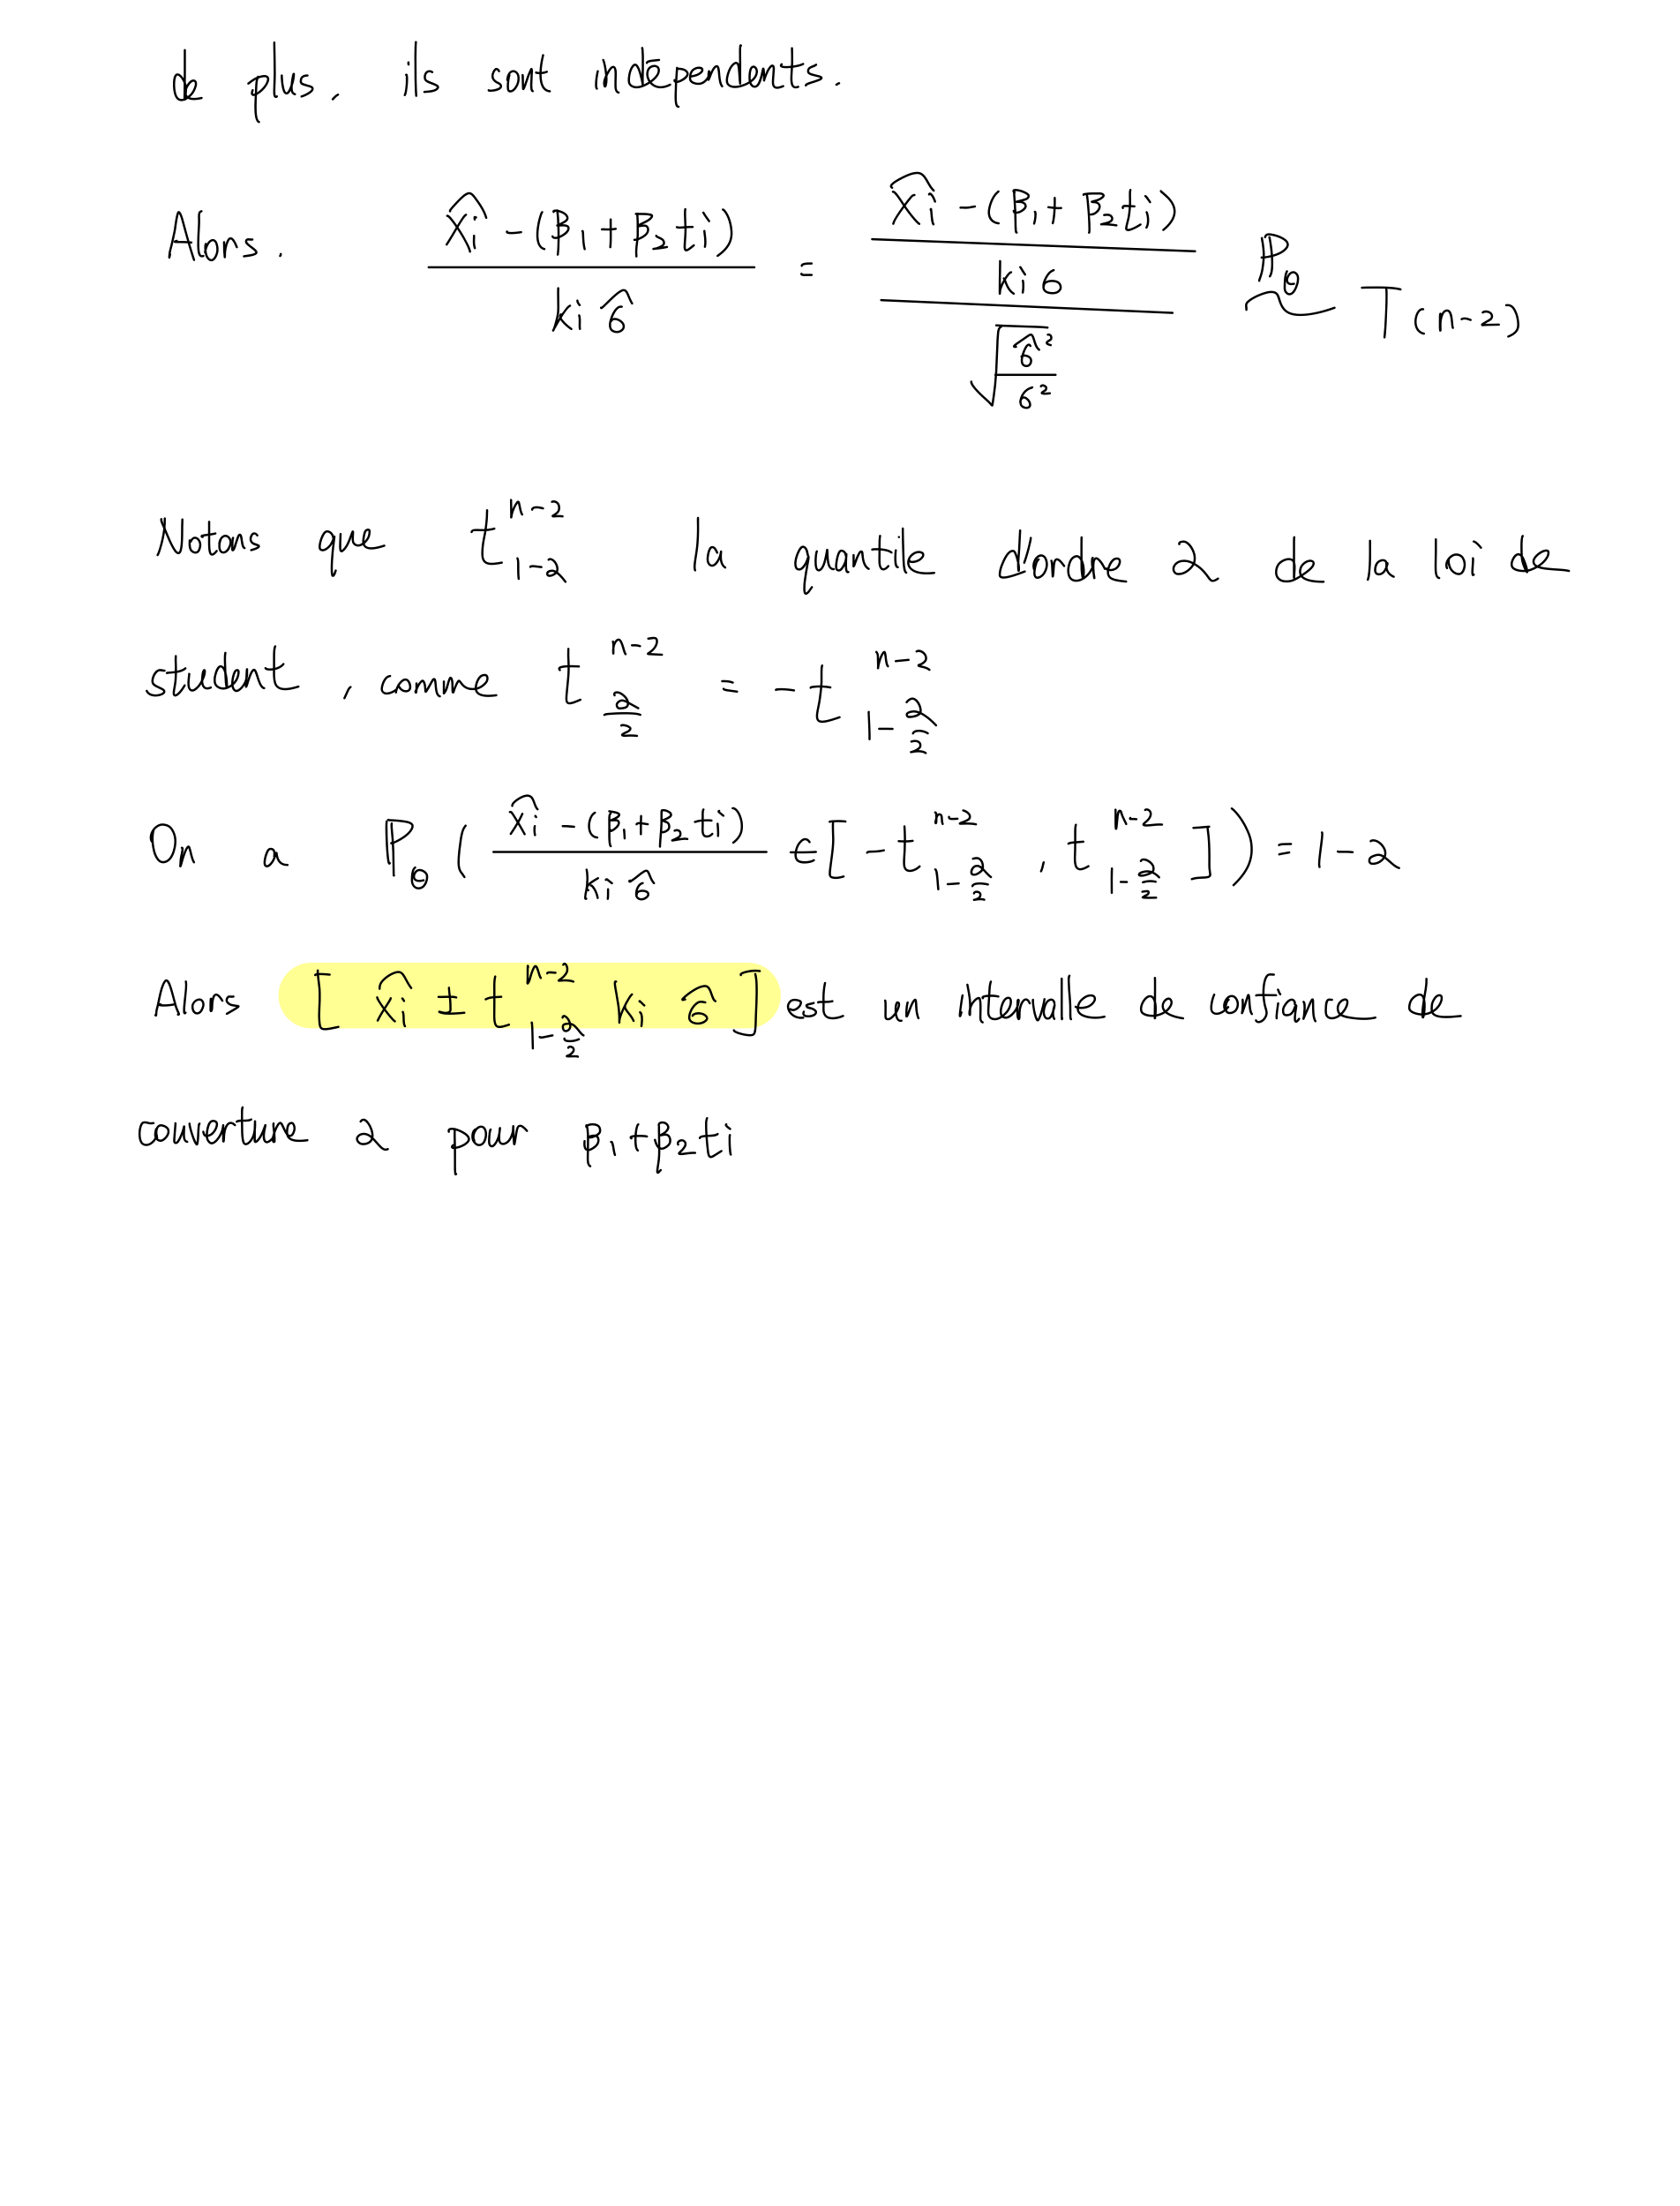 de plus, ils sont independents.
Alors. \frac{\widehat{X_i} - (β_1 + β_2 t_i)}{k_i \hat{σ}} = \frac{\frac{\widehat{X_i} - (β_1 + β_2 t_i)}{k_i σ}}{\sqrt{\frac{\hat{σ}^2}{σ^2}}} \overset{P_θ}{\sim} T(n-2)
Notons que t^{n-2}_{1-α} la quantile d'ordre α de la loi de
student, comme t^{n-2}_{\frac{α}{2}} = -t^{n-2}_{1-\frac{α}{2}}
On a P_θ ( \frac{\widehat{X_i} - (β_1 + β_2 t_i)}{k_i \hat{σ}} ∈ [ -t^{n-2}_{1-\frac{α}{2}} , t^{n-2}_{1-\frac{α}{2}} ] ) = 1-α
Alors [ \widehat{X_i} ± t^{n-2}_{1-\frac{α}{2}} k_i \hat{σ} ] est un intervalle de confiance de
couverture α pour β_1 + β_2 t_i